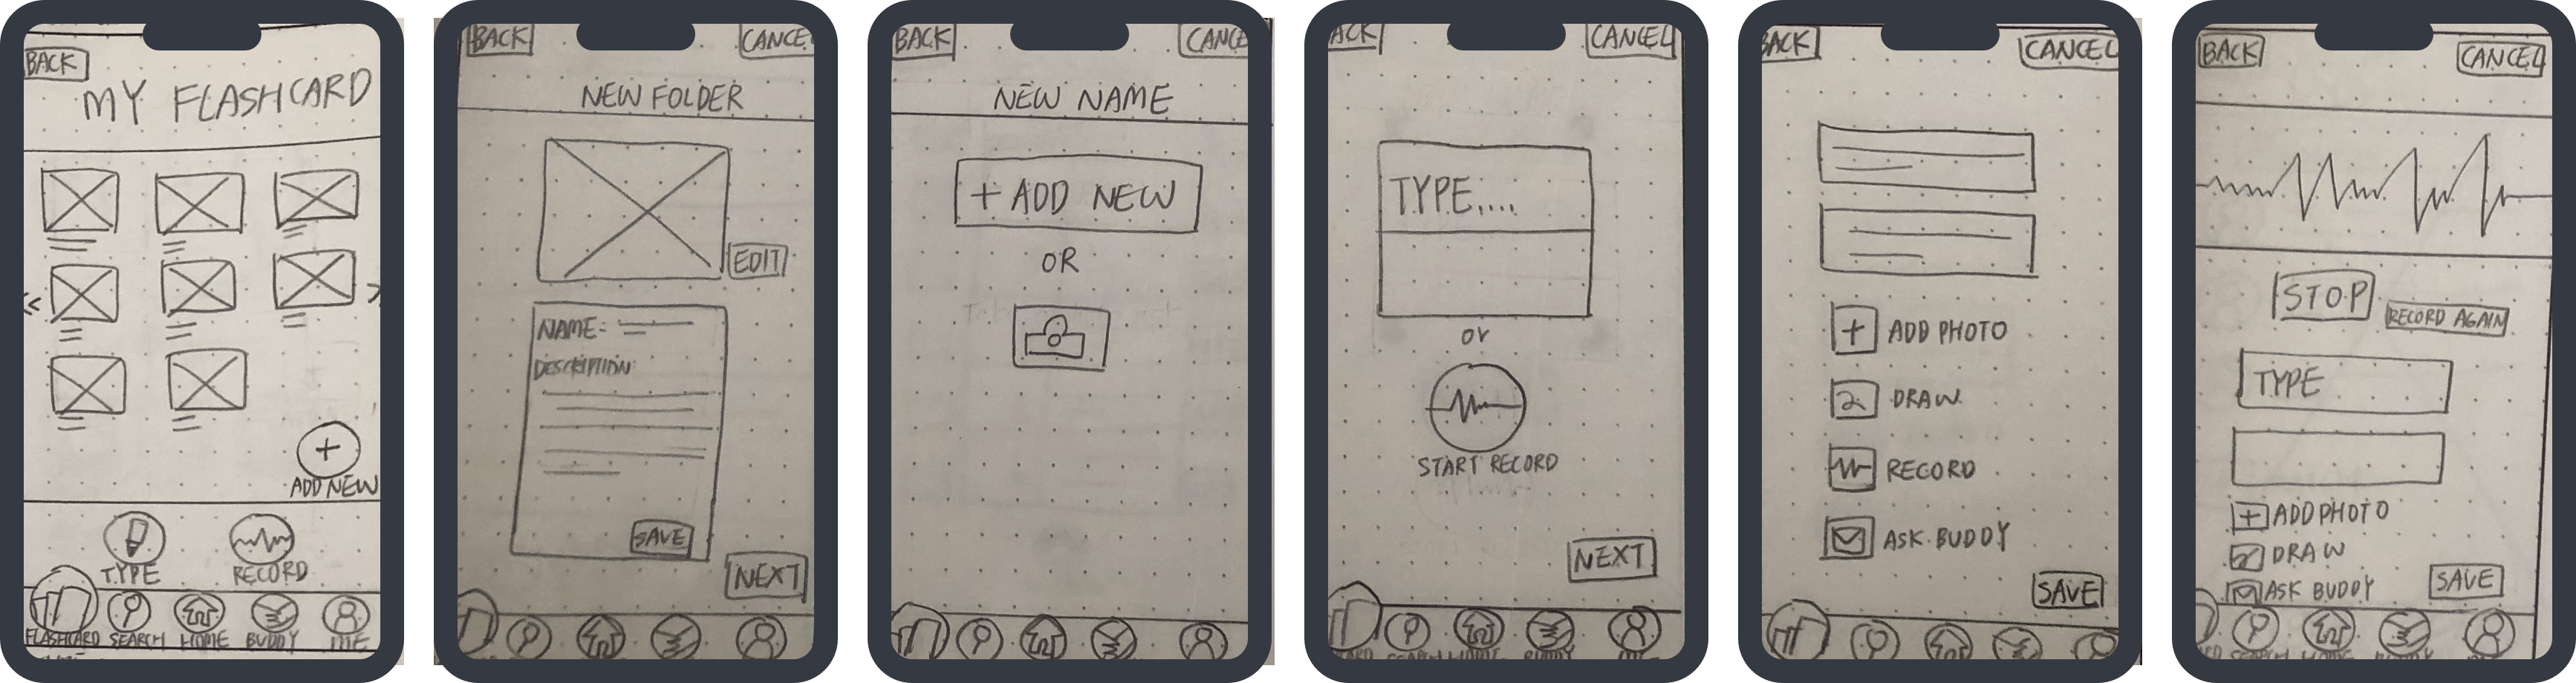 BACK
MY FLASHCARD
+
ADD NEW
TYPE
RECORD
FLASHCARD SEARCH HOME BUDDY ME
BACK
CANCE
NEW FOLDER
EDIT
NAME:
DESCRIPTION:
SAVE
NEXT
BACK
CANCE
NEW NAME
+ ADD NEW
OR
ACK
CANCEL
TYPE....
or
START RECORD
NEXT
BACK
CANCEL
+ ADD PHOTO
DRAW
RECORD
ASK BUDDY
SAVE
BACK
CANCEL
STOP
RECORD AGAIN
TYPE
+ ADD PHOTO
DRAW
ASK BUDDY
SAVE